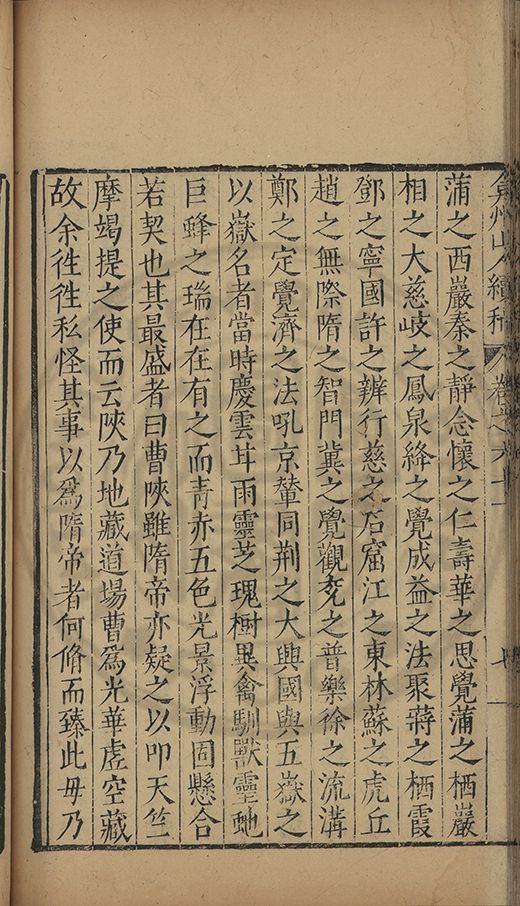 弇州山人續稿 卷之六十一 七
蒲之西巖秦之靜念懷之仁壽華之思覺蒲之栖巖
相之大慈岐之鳳泉絳之覺成益之法聚蔣之栖霞
鄧之寧國許之辨行慈之石窟江之東林蘇之虎丘
趙之無際隋之智門冀之覺觀兗之普樂徐之流溝
鄭之定覺濟之法吼京輦同荆之大興國與五嶽之
以嶽名者當時慶雲甘雨靈芝瑰樹異禽馴獸靈虵
巨蜂之瑞在在有之而青赤五色光景浮動固懸合
若契也其最盛者曰曹陜雖隋帝亦疑之以叩天竺
摩竭提之使而云陜乃地藏道場曹爲光華虛空藏
故余徃徃私怪其事以爲隋帝者何脩而臻此毋乃